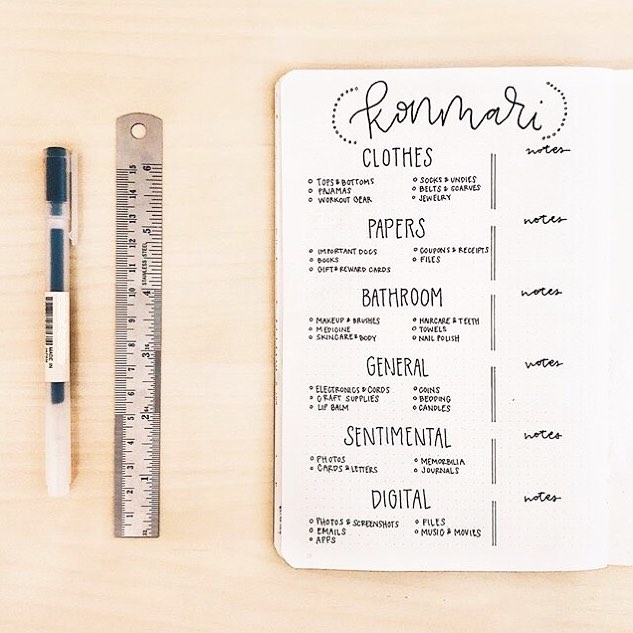 konmari
CLOTHES
notes
TOPS & BOTTOMS
PAJAMAS
WORKOUT GEAR
SOCKS & UNDIES
BELTS & SCARVES
JEWELRY
PAPERS
notes
IMPORTANT DOCS
BOOKS
GIFT & REWARD CARDS
COUPONS & RECEIPTS
FILES
BATHROOM
notes
MAKEUP & BRUSHES
MEDICINE
SKINCARE & BODY
HAIRCARE & TEETH
TOWELS
NAIL POLISH
GENERAL
notes
ELECTRONICS & CORDS
CRAFT SUPPLIES
LIP BALM
COINS
BEDDING
CANDLES
SENTIMENTAL
notes
PHOTOS
CARDS & LETTERS
MEMORBILIA
JOURNALS
DIGITAL
notes
PHOTOS & SCREENSHOTS
EMAILS
APPS
FILES
MUSIC & MOVIES
STAINLESS STEEL
1 2 3 4 5 6
1 2 3 4 5 6 7 8 9 10 11 12 13 14 15
MADE IN